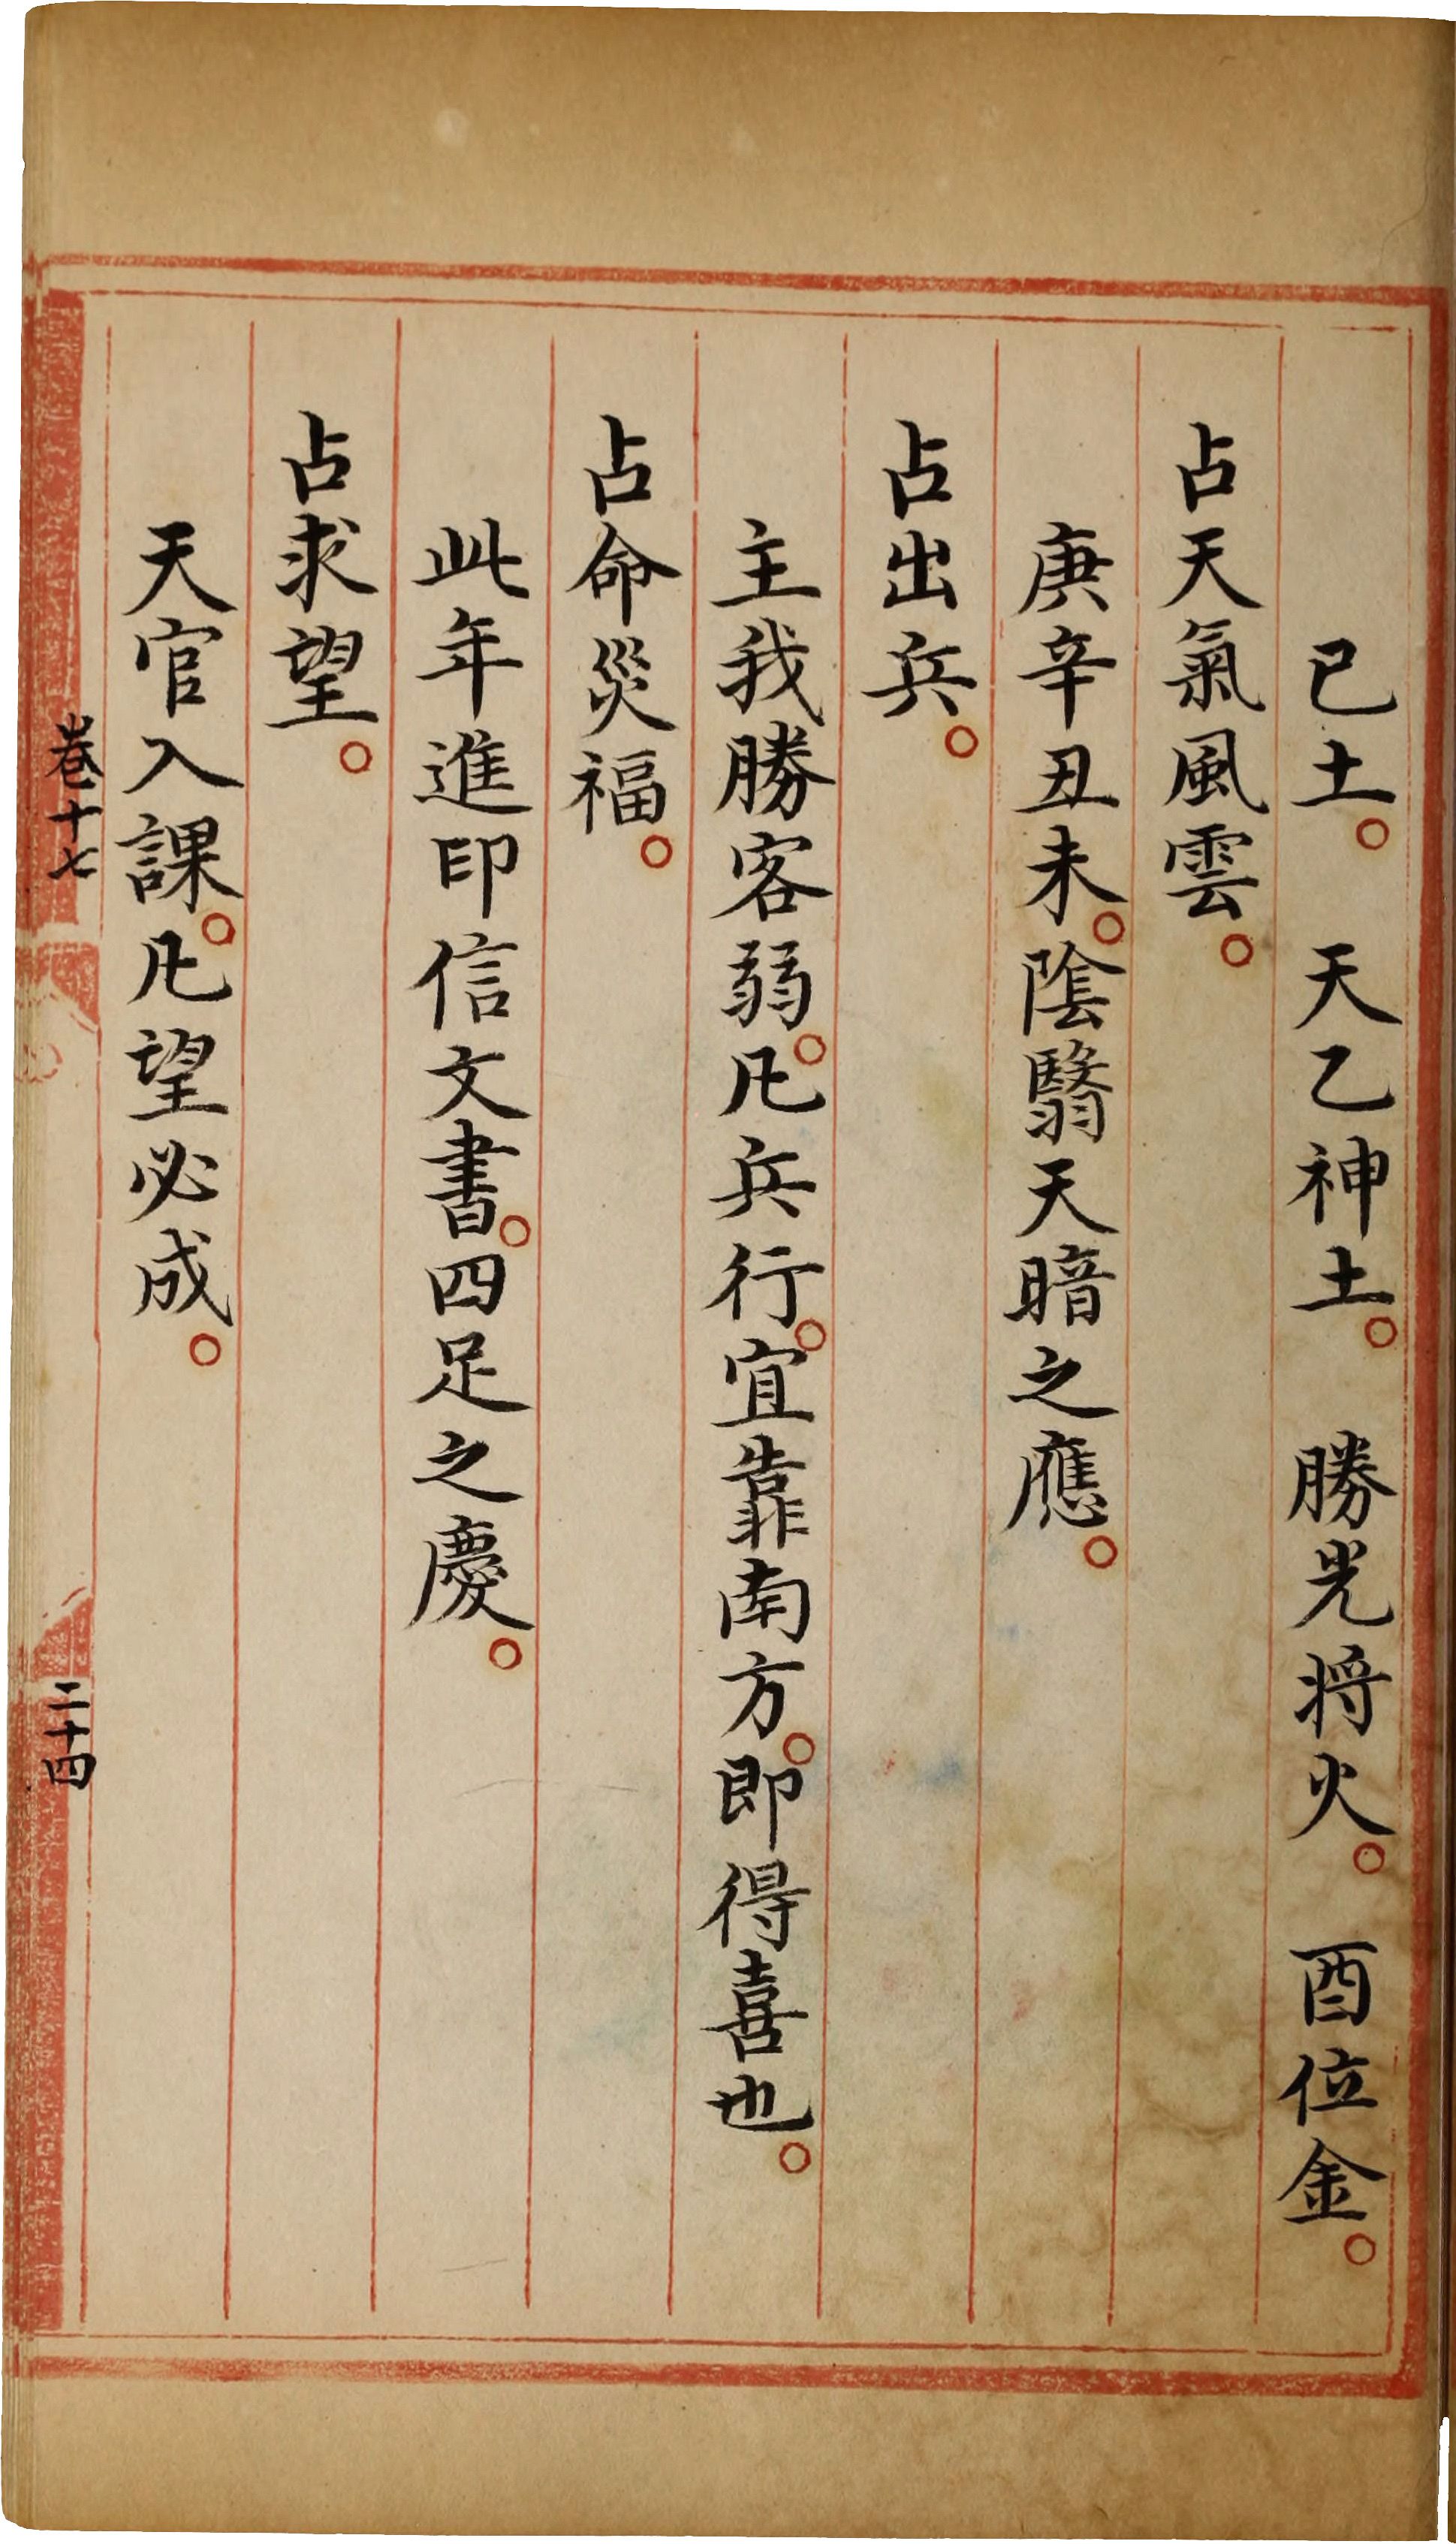 己土。　天乙神土。　勝光將火。　酉位金。
占天氣風雲。
庚辛丑未。陰翳天暗之應。
占出兵。
主我勝客弱。凡兵行。宜靠南方。即得喜也。
占命災福。
此年進印信文書。四足之慶。
占求望。
天官入課。凡望必成。
卷十七
二十四